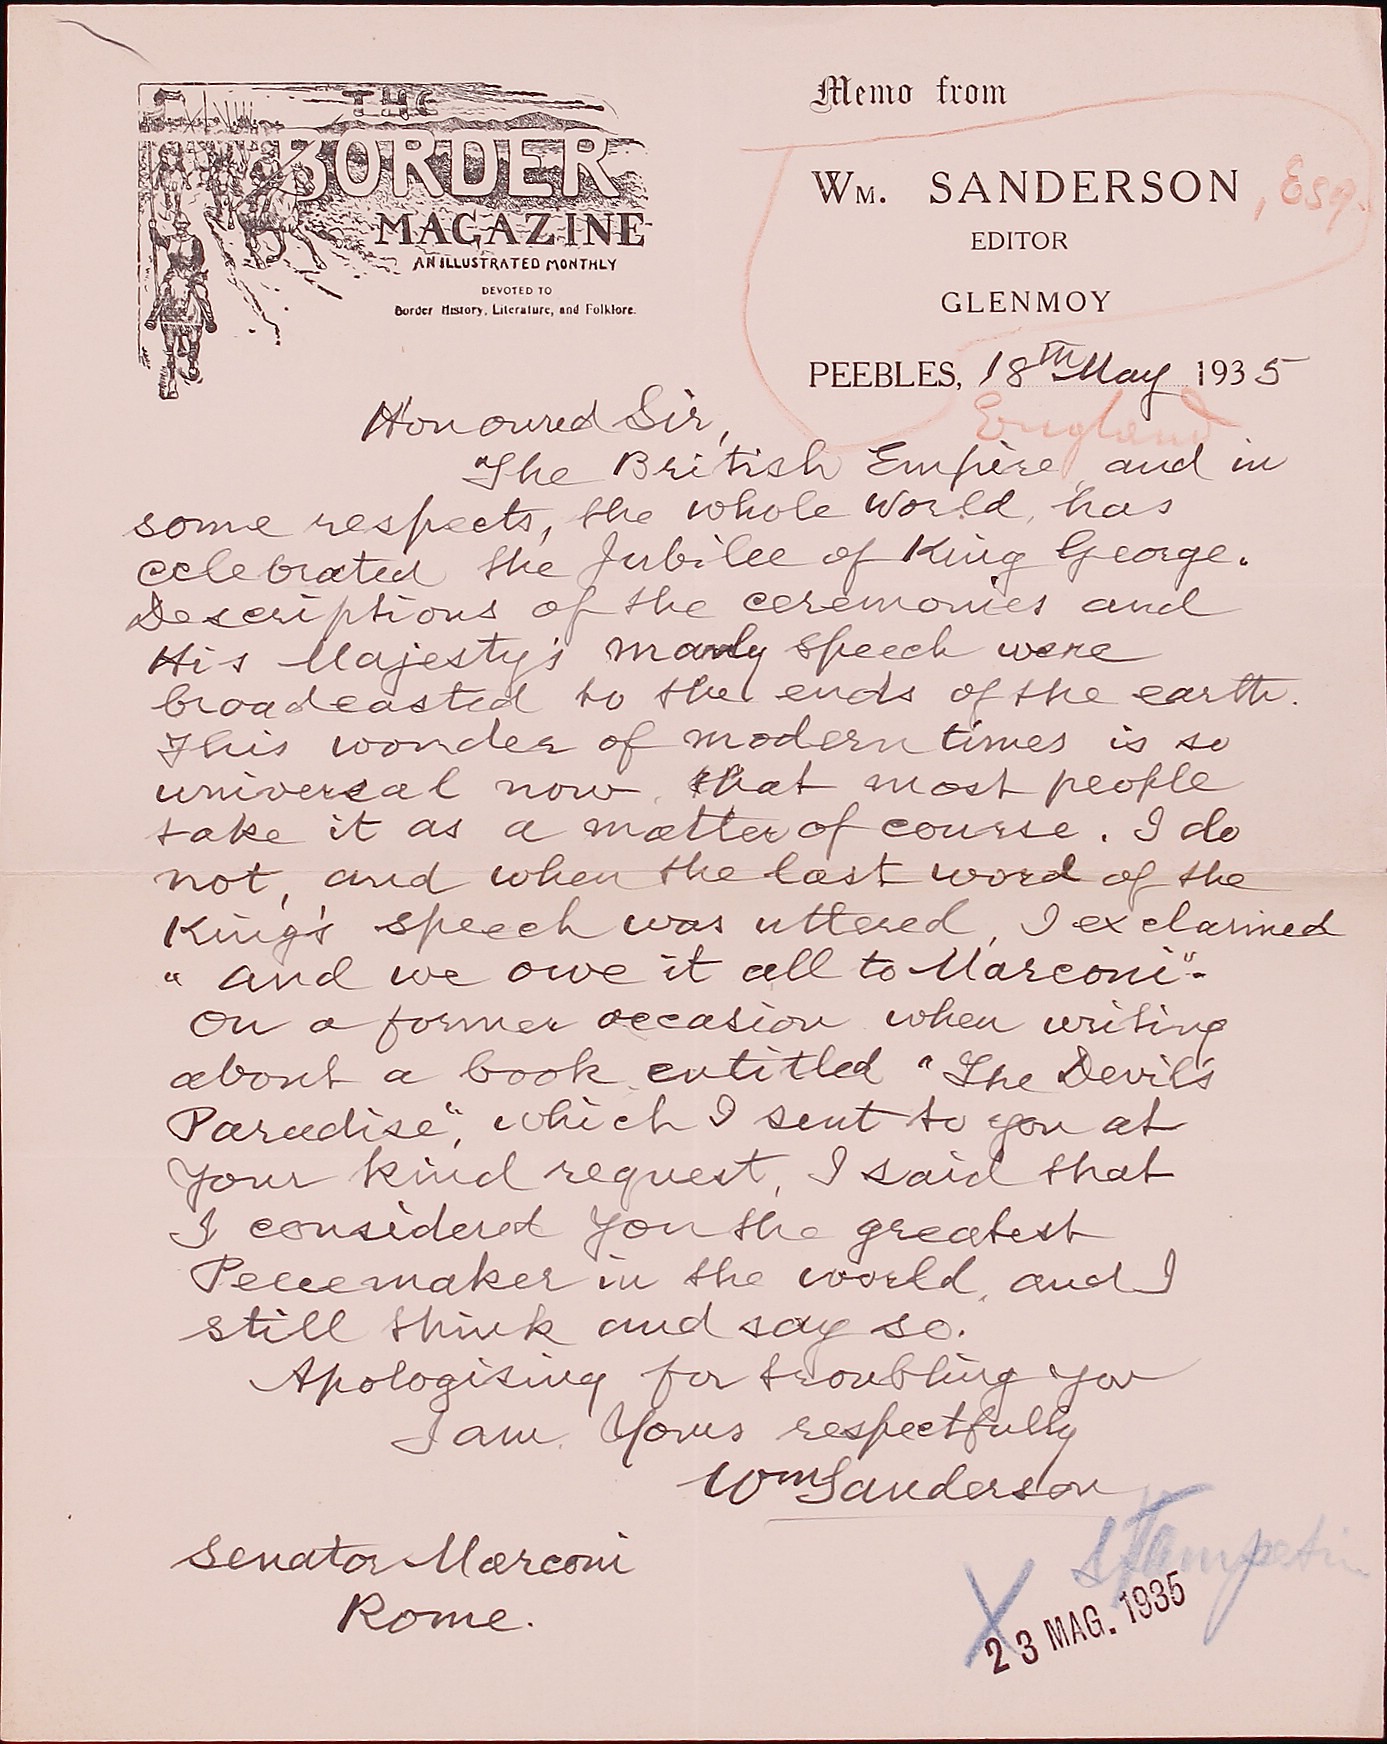 THE
BORDER
MAGAZINE
AN ILLUSTRATED MONTHLY
DEVOTED TO
Border History, Literature, and Folklore.
Memo from
WM. SANDERSON, Esq.
EDITOR
GLENMOY
PEEBLES, 18th May 1935
England
Honoured Sir,
The British Empire, and in
some respects, the whole world, has
celebrated the Jubilee of King George.
Descriptions of the ceremonies and
His Majesty's manly speech were
broadcasted to the ends of the earth.
This wonder of modern times is so
universal now, that most people
take it as a matter of course. I do
not, and when the last word of the
King's speech was uttered, I exclaimed
"and we owe it all to Marconi".
On a former occasion when writing
about a book entitled "The Devil's
Paradise", which I sent to you at
your kind request, I said that
I considered you the greatest
Peacemaker in the world, and I
still think and say so.
Apologising for troubling you
I am. Yours respectfully
Wm Sanderson
Senator Marconi
Rome.
X
23 MAG. 1935